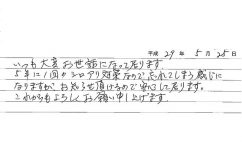 平成 29年 5月 25日
いつも大変お世話になって居ります。
5年に1回のシロアリ対策なので忘れてしまう感じに
なりますが、お知らせ頂けるので安心して居ります。
これからもよろしくお願い申し上げます。